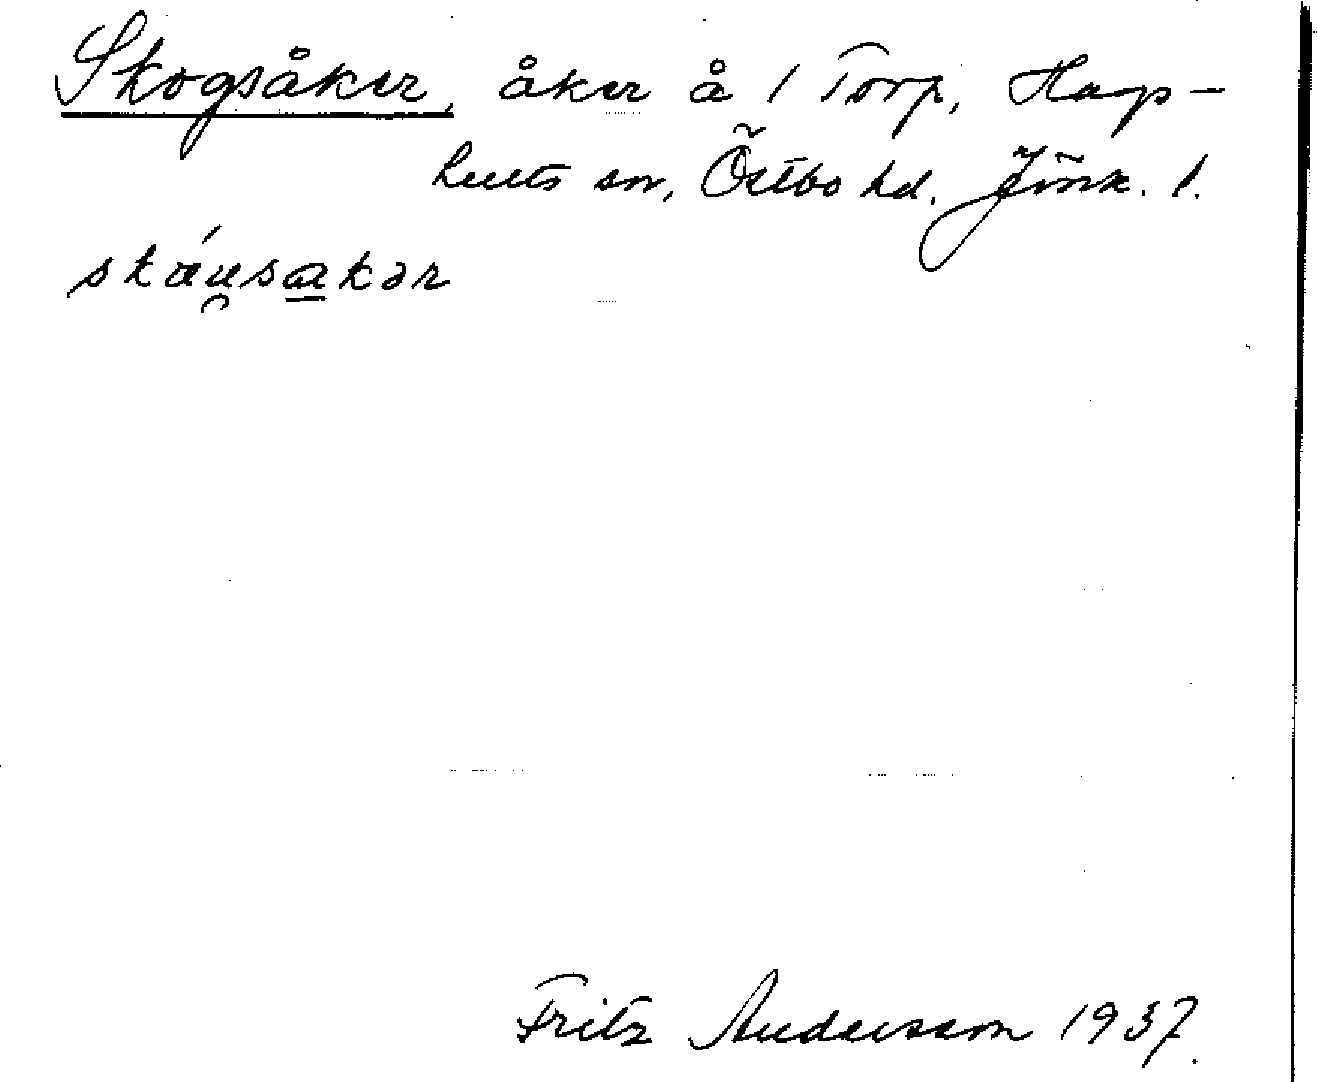 Skogsåker, åker å 1 Torp, Hags-
hults sn, Östbo hd. Jönk. l.
skáu̯sa̲kər
Fritz Andersson 1937.